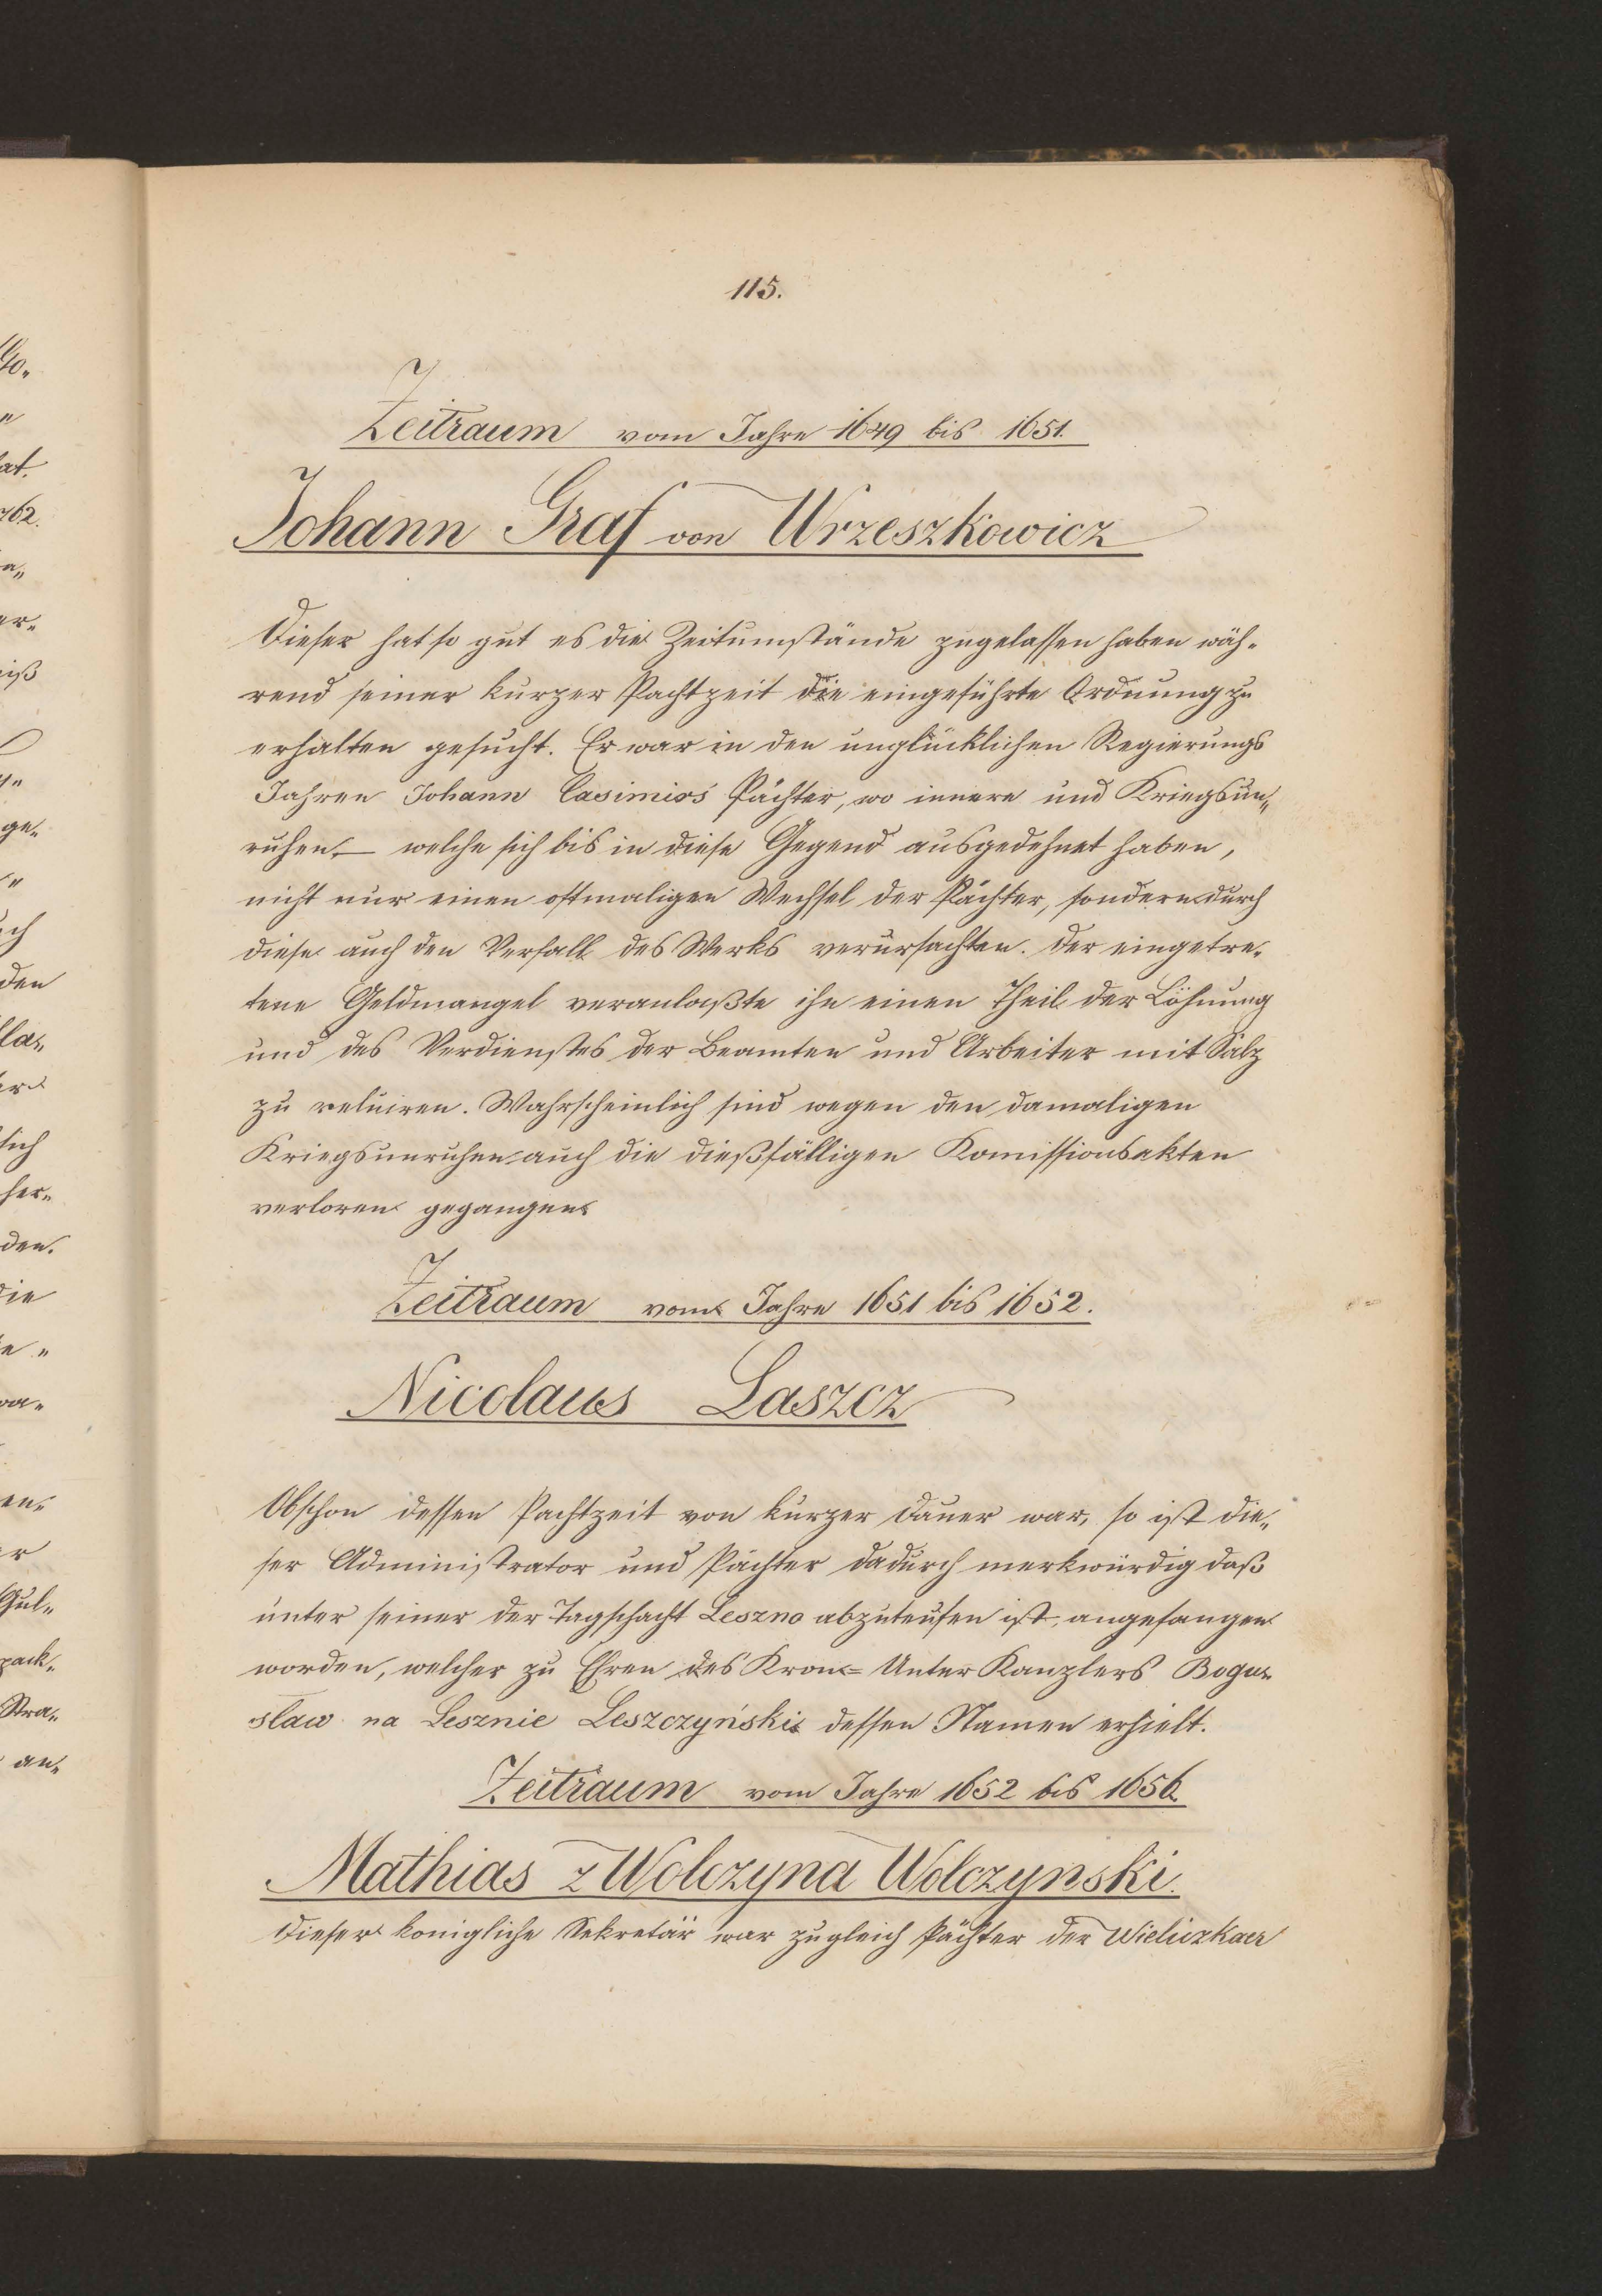 115.
Zeitraum vom Jahre 1649 bis 1651.
Johann Graf von Wrzeszkowicz
Dieser hat so gut es die Zeitumstände zugelassen haben wäh-
rend seiner kurzer Pachtzeit die eingeführte Ordnung zu
erhalten gesucht. Er war in den unglücklichen Regierungs
Jahren Johann Casimirs Pächter, wo innere und Kriegsun„
ruhen, welche sich bis in diese Gegend ausgedehnt haben,
nicht nur einen oftmaligen Wechsel der Pächter, sondern durch
diese auch den Verfall des Werks verursachten. Der eingetre„
tene Geldmangel veranlaßte ihn einen Theil der Löhnung
und des Verdienstes der Beamten und Arbeiter mit Salz
zu reluiren. Wahrscheinlich sind wegen den damaligen
Kriegsunruhen auch die dießfälligen Komissionsakten
verloren gegangen.
Zeitraum vom Jahre 1651 bis 1652.
Nicolaus Laszcz
Obschon dessen Pachtzeit von kurzer Dauer war, so ist die„
ser Administrator und Pächter dadurch merkwürdig daß
unter seiner der Tagschacht Leszno abzuteufen ist, angefangen
worden, welcher zu Ehren des Kron= Unter Kanzlers Bogu„
slaw na Lesznie Leszczyński dessen Namen erhielt.
Zeitraum vom Jahre 1652 bis 1656.
Mathias z Wolczyna Wolczynski.
Dieser königliche Sekretär war zugleich Pächter der Wieliczkaer
10„
"
at.
762.
a„
er„
iß
"
ge„
"
ch
den
la„
er
sich
her„
den.
die
e „
va„
en„
er
Gul„
pack„
Stra„
an„